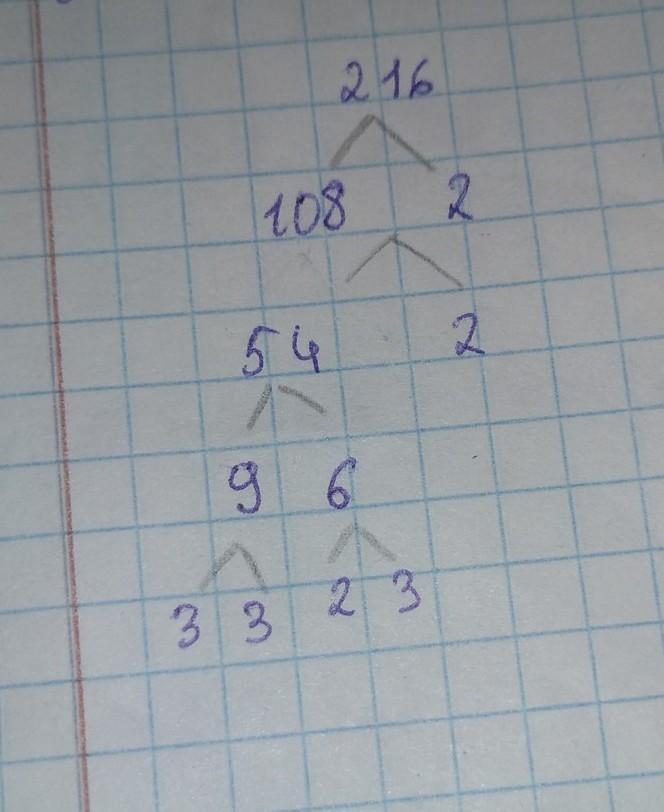 216
108 2
54 2
9 6
3 3 2 3